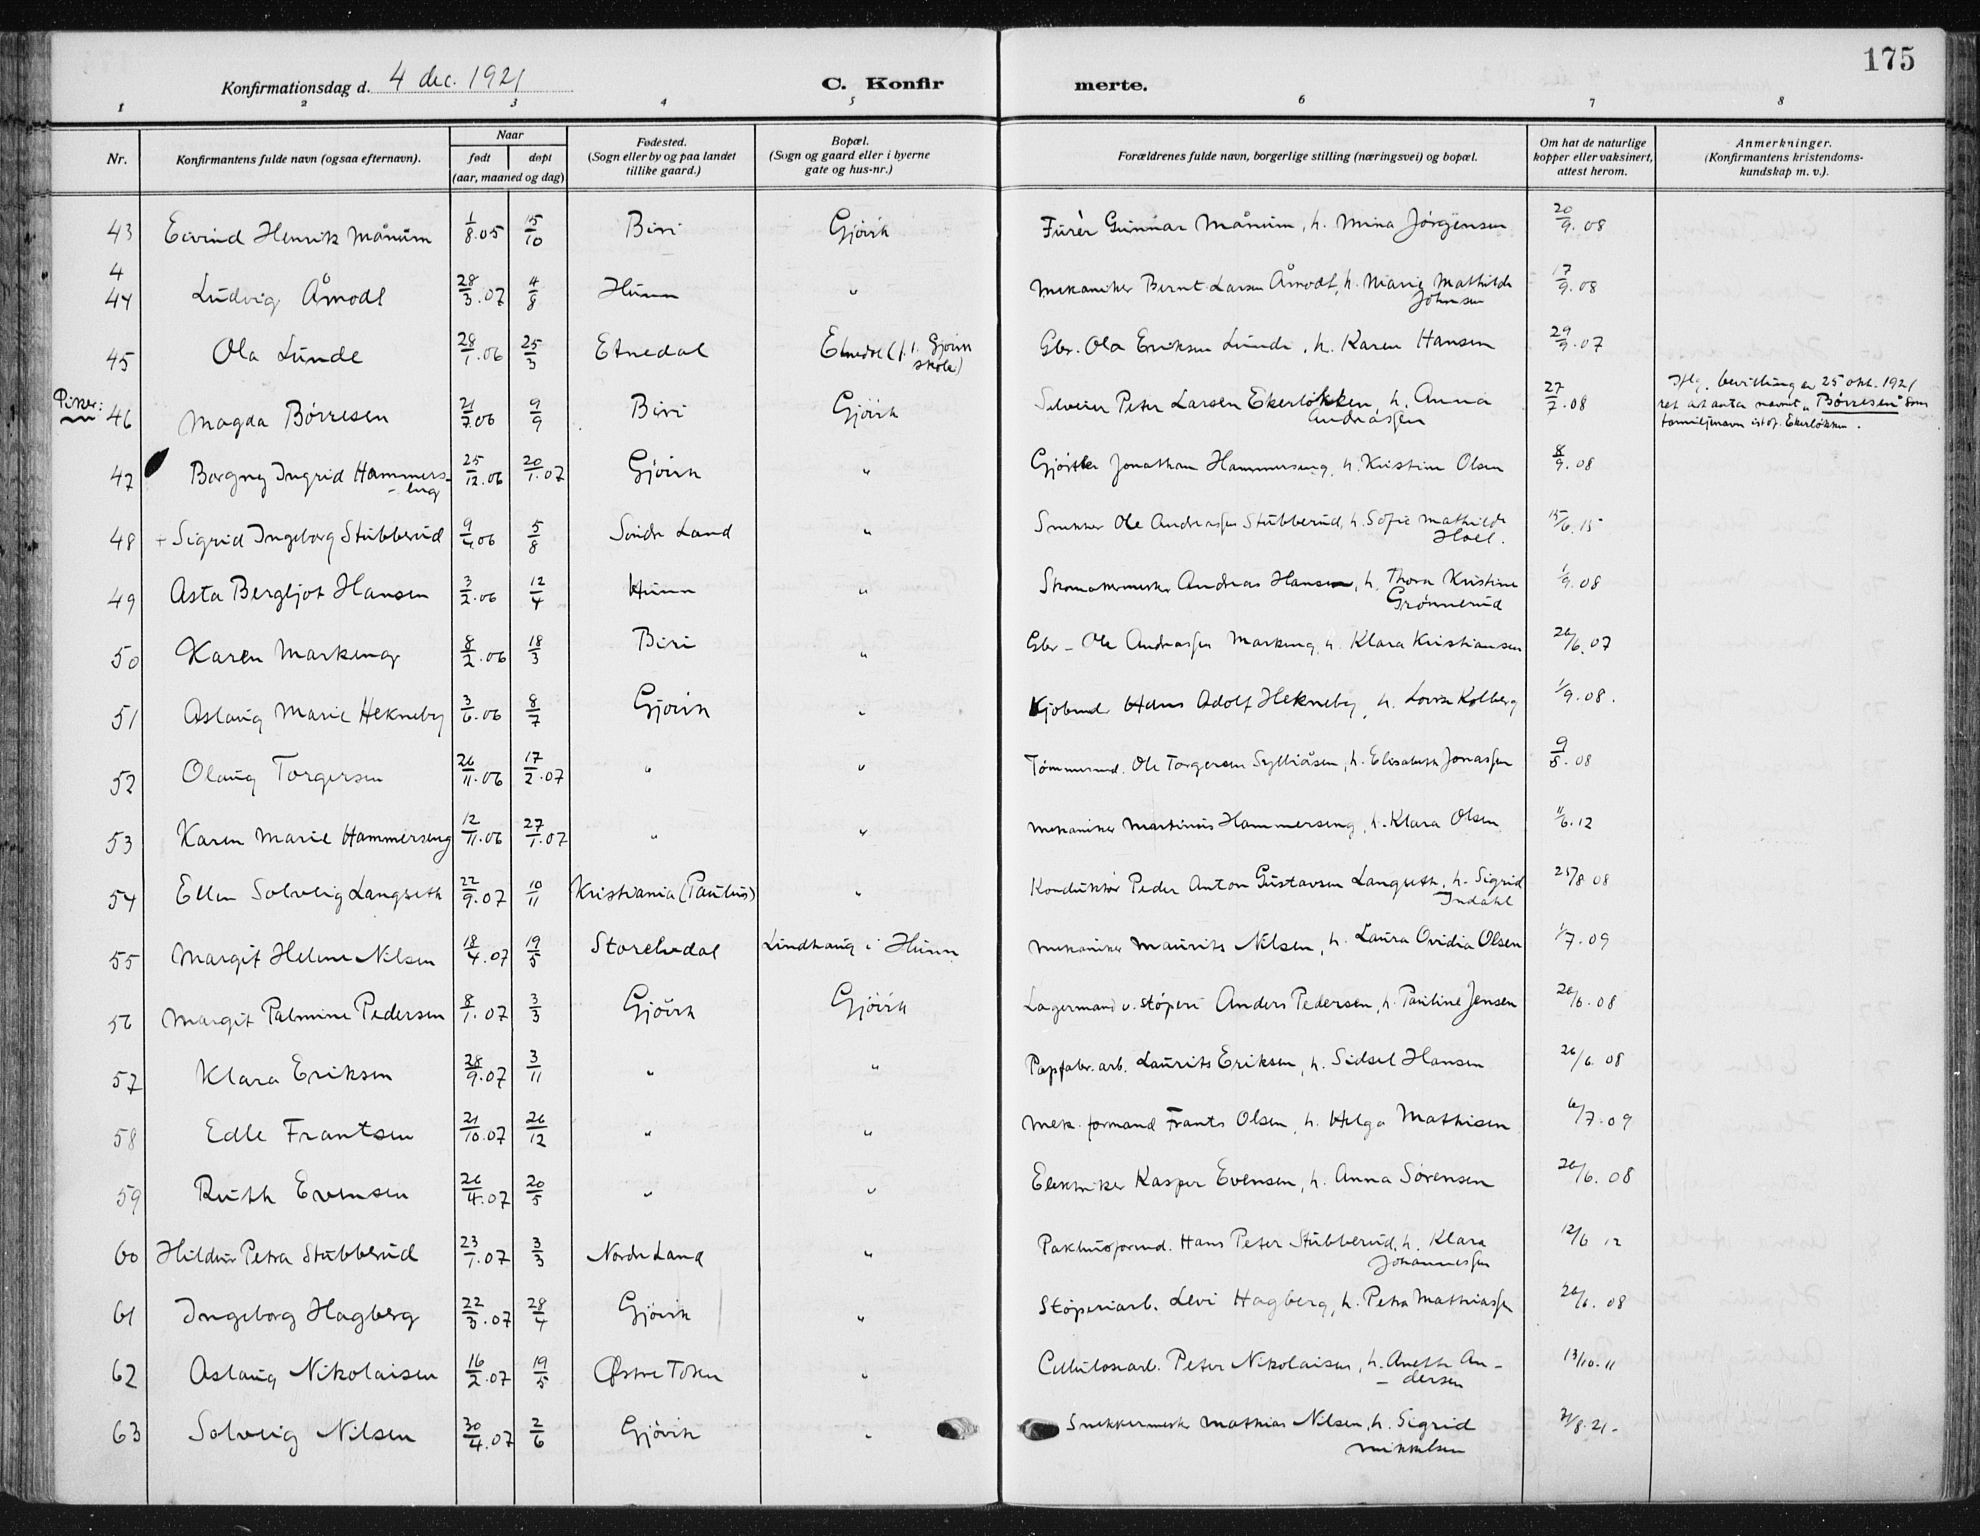 175
Konfirmationsdag d. 4 dec. 1921
C. Konfir merte.
1 2 3 4 5 6 7 8
Nr. Konfirmantens fulde navn (ogsaa efternavn). Naar født døpt (aar, maaned og dag) Fødested. (Sogn eller by og paa landet tillike gaard.) Bopæl. (Sogn og gaard eller i byerne gate og hus-nr.) Forældrenes fulde navn, borgerlige stilling (næringsvei) og bopæl. Om hat de naturlige kopper eller vaksinert, attest herom. Anmerkninger. (Konfirmantens kristendoms-kundskap m. v.).
43 Eivind Henrik Månum 1/8.05 15/10 Biri Gjövik Furér Gunnar Månum, h. Mina Jörgensen 20/9.08
4
44 Ludvig Åmodt 28/3.07 4/8 Hunn " Mekaniker Bernt Larsen Åmodt, h. Marie Mathilde Johnsen 17/9.08
45 Ola Lunde 28/1.06 25/3 Etnedal Etnedal (f. t. Gjövik skole) Gbr. Ola Eriksen Lunde, h. Karen Hansen 29/9.07
Piker:
46 Magda Börresen 21/7.06 9/9 Biri Gjövik Peter Larsen Ekerlökken, h. Anna Andreassen 27/7.08 Iflg. bevilling av 25 okt. 1921 ret til at anta navnet "Börresen" som familjenavn istf. Ekerlökken.
47 Borgny Ingrid Hammers-eng 25/12.06 20/1.07 Gjövik " Gjörtler Jonathan Hammerseng, h. Kristine Olsen 8/9.08
48 + Sigrid Ingeborg Stubberud 9/4.06 5/8 Söndre Land " Snekker Ole Andreassen Stubberud, h. Sofie Mathilde Hoel. 15/6.15
49 Asta Bergljot Hansen 3/2.06 12/4 Hunn " Skomakermester Andreas Hansen, h. Thora Kristine Grönnerud 1/9.08
50 Karen Markeng 8/2.06 18/3 Biri " Gbr. Ole Andreassen Markeng, h. Klara Kristiansen 26/6.07
51 Aslaug Marie Hekneby 3/6.06 8/7 Gjövik " Kjöbmd. Hans Adolf Hekneby, h. Lovise Kolberg 1/9.08.
52 Olaug Torgersen 26/11.06 17/2.07 " " Tömmermd. Ole Torgersen Sylliåsen, h. Elisabeth Jonassen 9/8.08
53 Karen Marie Hammerseng 12/11.06 27/1.07 " " Mekaniker Martinius Hammerseng, h. Klara Olsen 11/6.12
54 Ellen Solveig Langseth 22/9.07 10/11 Kristiania (Paulus) " Konduktör Peder Anton Gustavsen Langseth, h. Sigrid Indahl 25/8 08
55 Margit Helene Nilsen 18/4.07 19/5 Storelvdal Lindhaug i Hunn Mekaniker Maurits Nilsen, h. Laura Ovidia Olsen 1/7.09
56 Margit Palmine Pedersen 8/1.07 3/3 Gjövik Gjövik Lagermand v. støperi Anders Pedersen, h. Pauline Jensen 26/6.08
57 Klara Eriksen 28/9.07 3/11 " " Papfabr. arb. Laurits Eriksen, h. Sidsel Hansen 26/6.08
58 Edle Frantsen 21/10.07 26/12 " " Mek. formand Frants Olsen, h. Helga Mathisen 6/7.09
59 Ruth Evensen 26/4.07 20/5 " " Elektriker Kasper Evensen, h. Anna Sørensen 26/6.08
60 Hildur Petra Stubberud 23/1.07 3/3 Nordre Land " Pakhusformd. Hans Peter Stubberud, h. Klara Johannessen 12/6 12
61 Ingeborg Hagberg 22/3.07 28/4 Gjövik " Støperiarb. Levi Hagberg, h. Petra Mathiassen 26/6.08
62 Aslaug Nikolaisen 16/2.07 19/5 Østre Toten " Cellulosearb. Peter Nikolaisen, h. Anette An-dersen 13/10.11
63 Solveig Nilsen 30/4.07 2/6 Gjövik " Snekkermester Mathias Nilsen, h. Sigrid Mikkelsen 31/8.21.